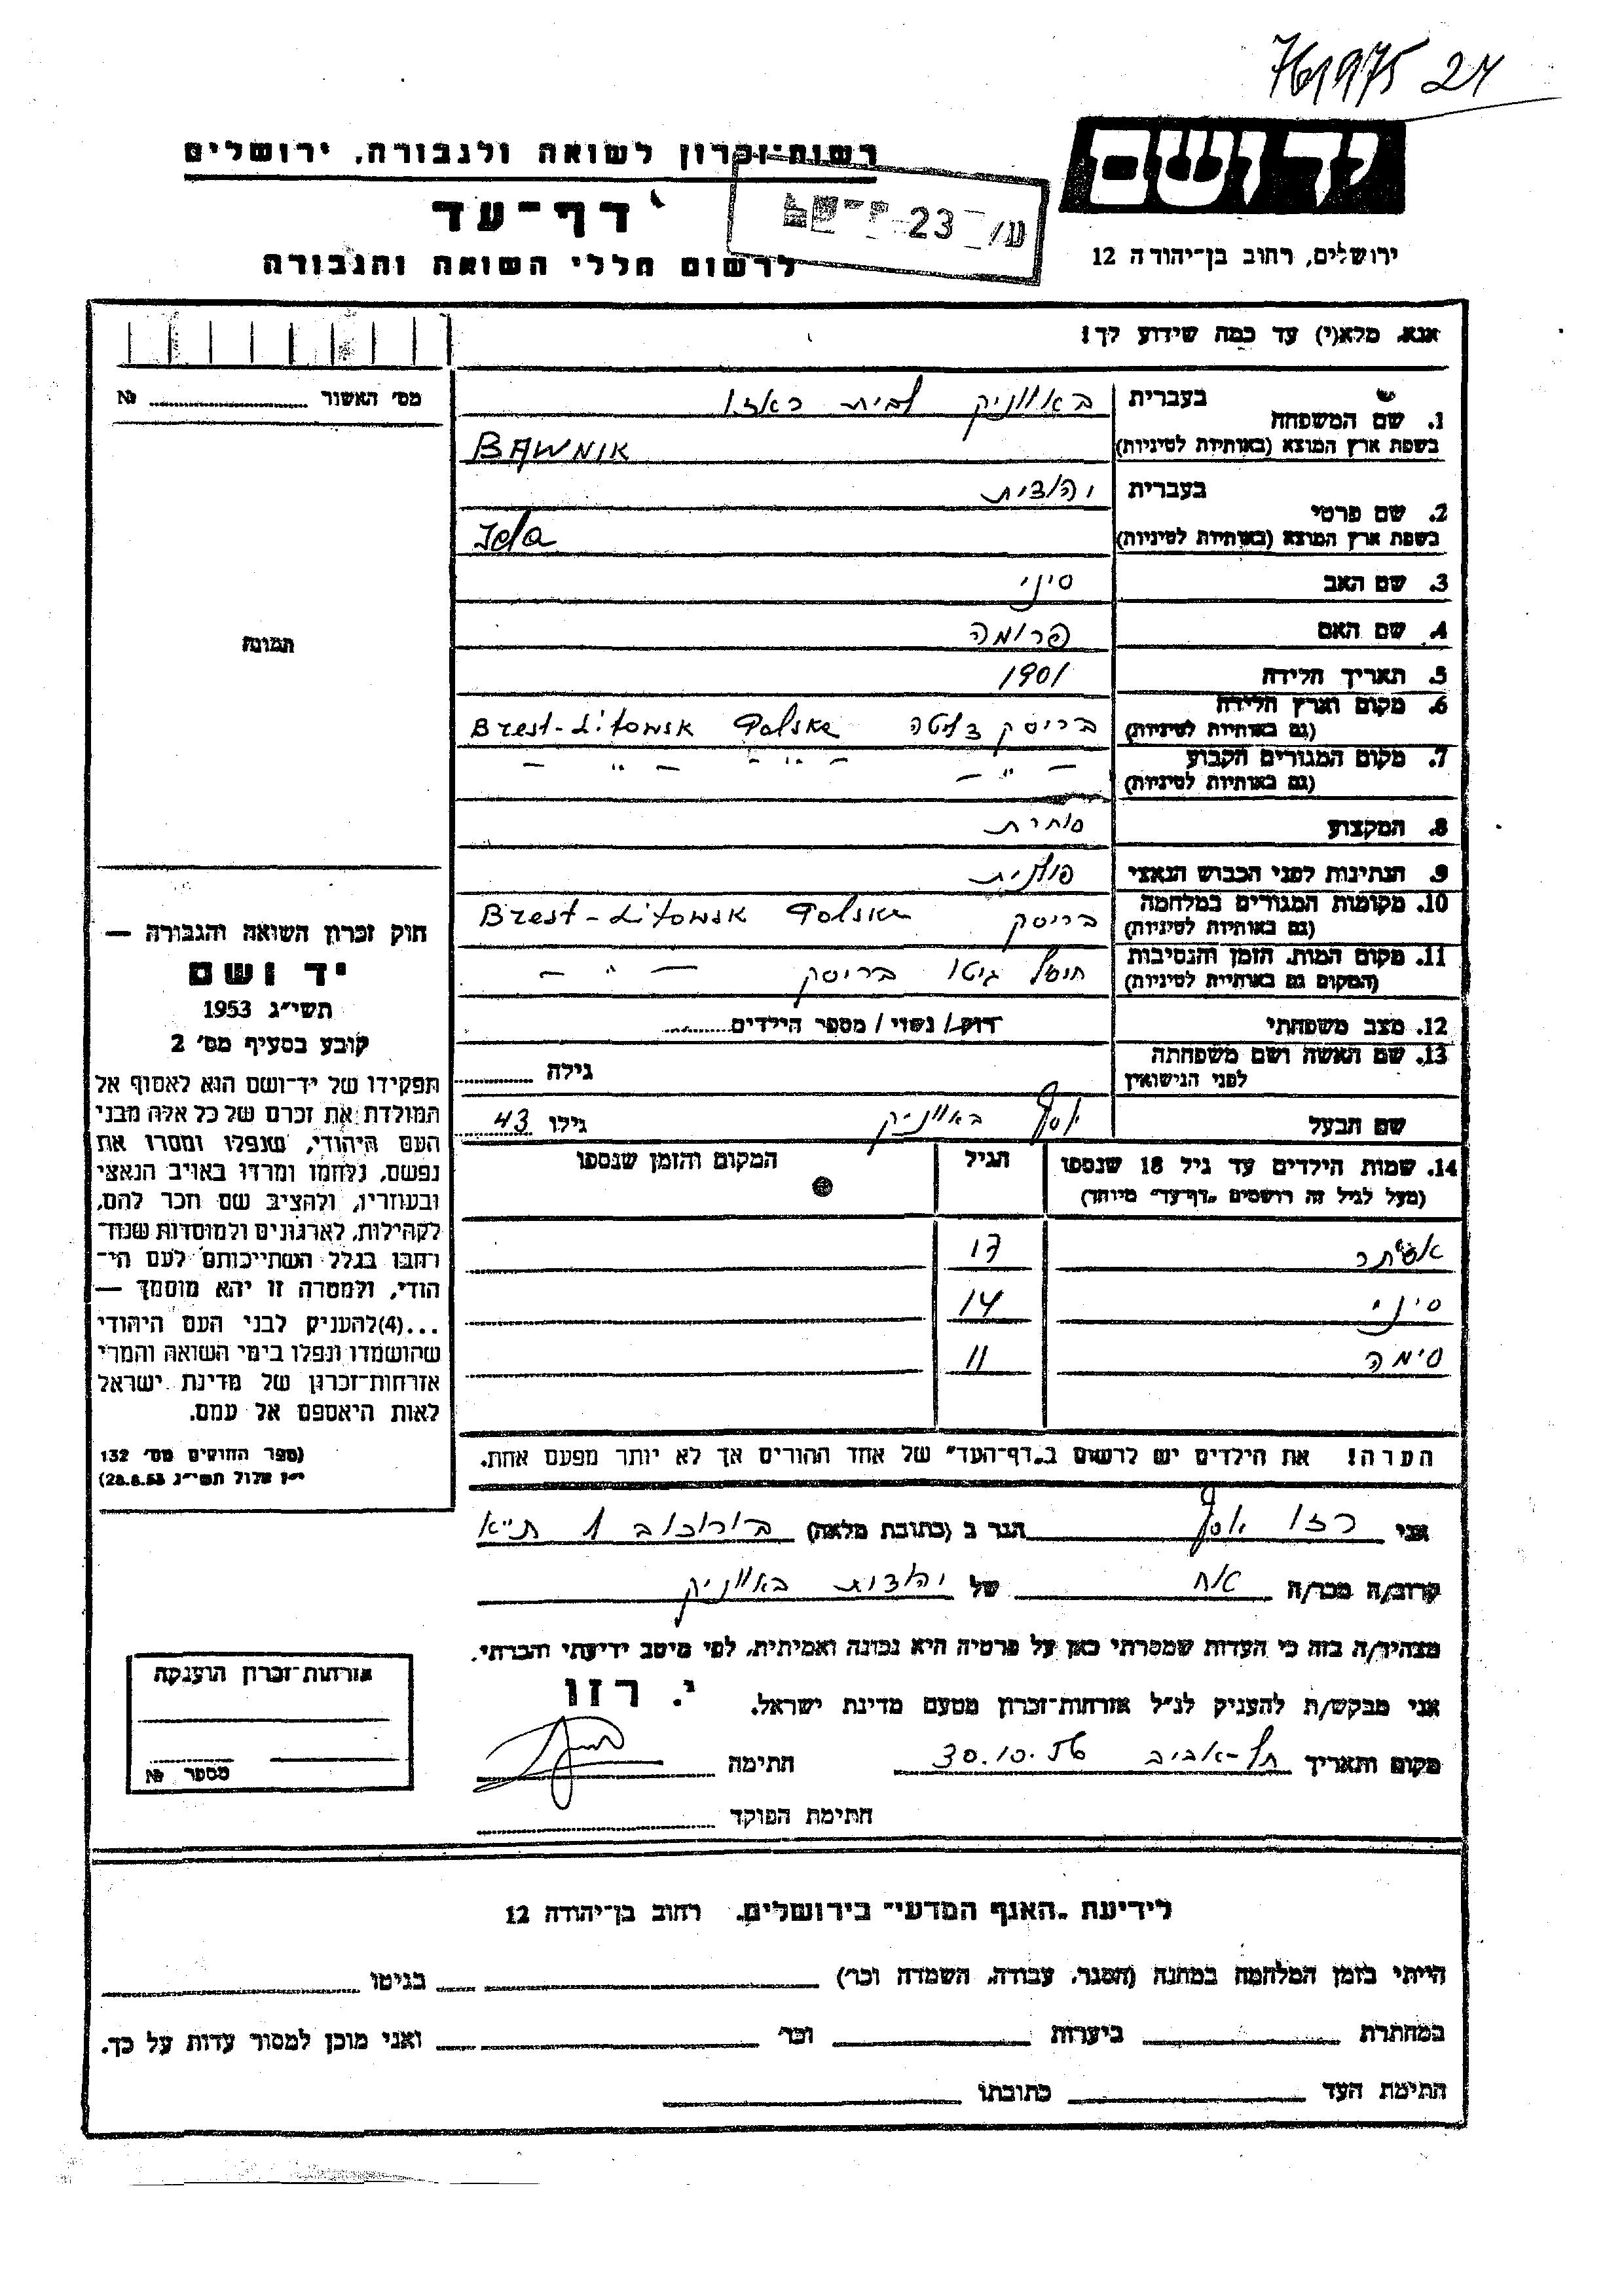 761975 24
יד ושם
רשות-זכרון לשואה ולגבורה, ירושלים
דף-עד
לרשום חללי השואה והגבורה
ירושלים, רחוב בן-יהודה 12
ע/ 23
אנא, מלא(י) עד כמה שידוע לך!
מס׳ האשור № 
1. שם המשפחה בעברית באווניק לבית ראזו
בשפת ארץ המוצא (באותיות לטיניות) BAWNIK
2. שם פרטי בעברית יהודית
בשפת ארץ המוצא (באותיות לטיניות) Ida
3. שם האב סיני
4. שם האם פרומה
5. תאריך הלידה 1901
6. מקום וארץ הלידה (גם באותיות לטיניות) בריסק דליטה Brest-Litowsk Polska
7. מקום המגורים הקבוע (גם באותיות לטיניות) — " — — " — " —
8. המקצוע סוחרת
9. הנתינות לפני הכבוש הנאצי פולנית
10. מקומות המגורים במלחמה (גם באותיות לטיניות) בריסק Brest-Litowsk Polska
11. מקום המות, הזמן והנסיבות (המקום גם באותיות לטיניות) חיסול גיטו בריסק — " —
12. מצב משפחתי רווק/ נשוי/ מספר הילדים
13. שם האשה ושם משפחתה לפני הנישואין גילה
שם הבעל יוסף באווניק גילו 43
14. שמות הילדים עד גיל 18 שנספו (מעל לגיל זה רושמים „דף-עד" מיוחד) הגיל המקום והזמן שנספו
אסתר 17
סיני 14
סימה 11
הערה! את הילדים יש לרשום ב„דף-העד" של אחד ההורים אך לא יותר מפעם אחת.
תמונה
חוק זכרון השואה והגבורה —
יד ושם
תשי״ג 1953
קובע בסעיף מס׳ 2
תפקידו של יד-ושם הוא לאסוף אל
המולדת את זכרם של כל אלה מבני
העם היהודי, שנפלו ומסרו את
נפשם, נלחמו ומרדו באויב הנאצי
ובעוזריו, ולהציב שם וזכר להם,
לקהילות, לארגונים ולמוסדות שנח-
רבו בגלל השתייכותם לעם הי-
הודי, ולמטרה זו יהא מוסמך —
...(4)להעניק לבני העם היהודי
שהושמדו ונפלו בימי השואה והמרי
אזרחות-זכרון של מדינת ישראל
לאות היאספם אל עמם.
(ספר החוקים מס׳ 132
י״ז אלול תשי״ג 28.8.53)
אני רזו יוסף הגר ב (כתובת מלאה) בורוכוב 1 ת״א
קרוב/ה מכר/ה אח של יהודית באווניק
מצהיר/ה בזה כי העדות שמסרתי כאן על פרטיה היא נכונה ואמיתית, לפי מיטב ידיעתי והכרתי.
אני מבקש/ת להעניק לנ״ל אזרחות-זכרון מטעם מדינת ישראל.
י. רזו
מקום ותאריך תל-אביב 30.10.56 חתימה
חתימת הפוקד
אזרחות-זכרון הוענקה
מספר №
לידיעת „האגף המדעי" בירושלים, רחוב בן-יהודה 12
הייתי בזמן המלחמה במחנה (הסגר, עבודה, השמדה וכו׳) בגיטו
במחתרת ביערות וכו׳ ואני מוכן למסור עדות על כך.
חתימת העד כתובתו